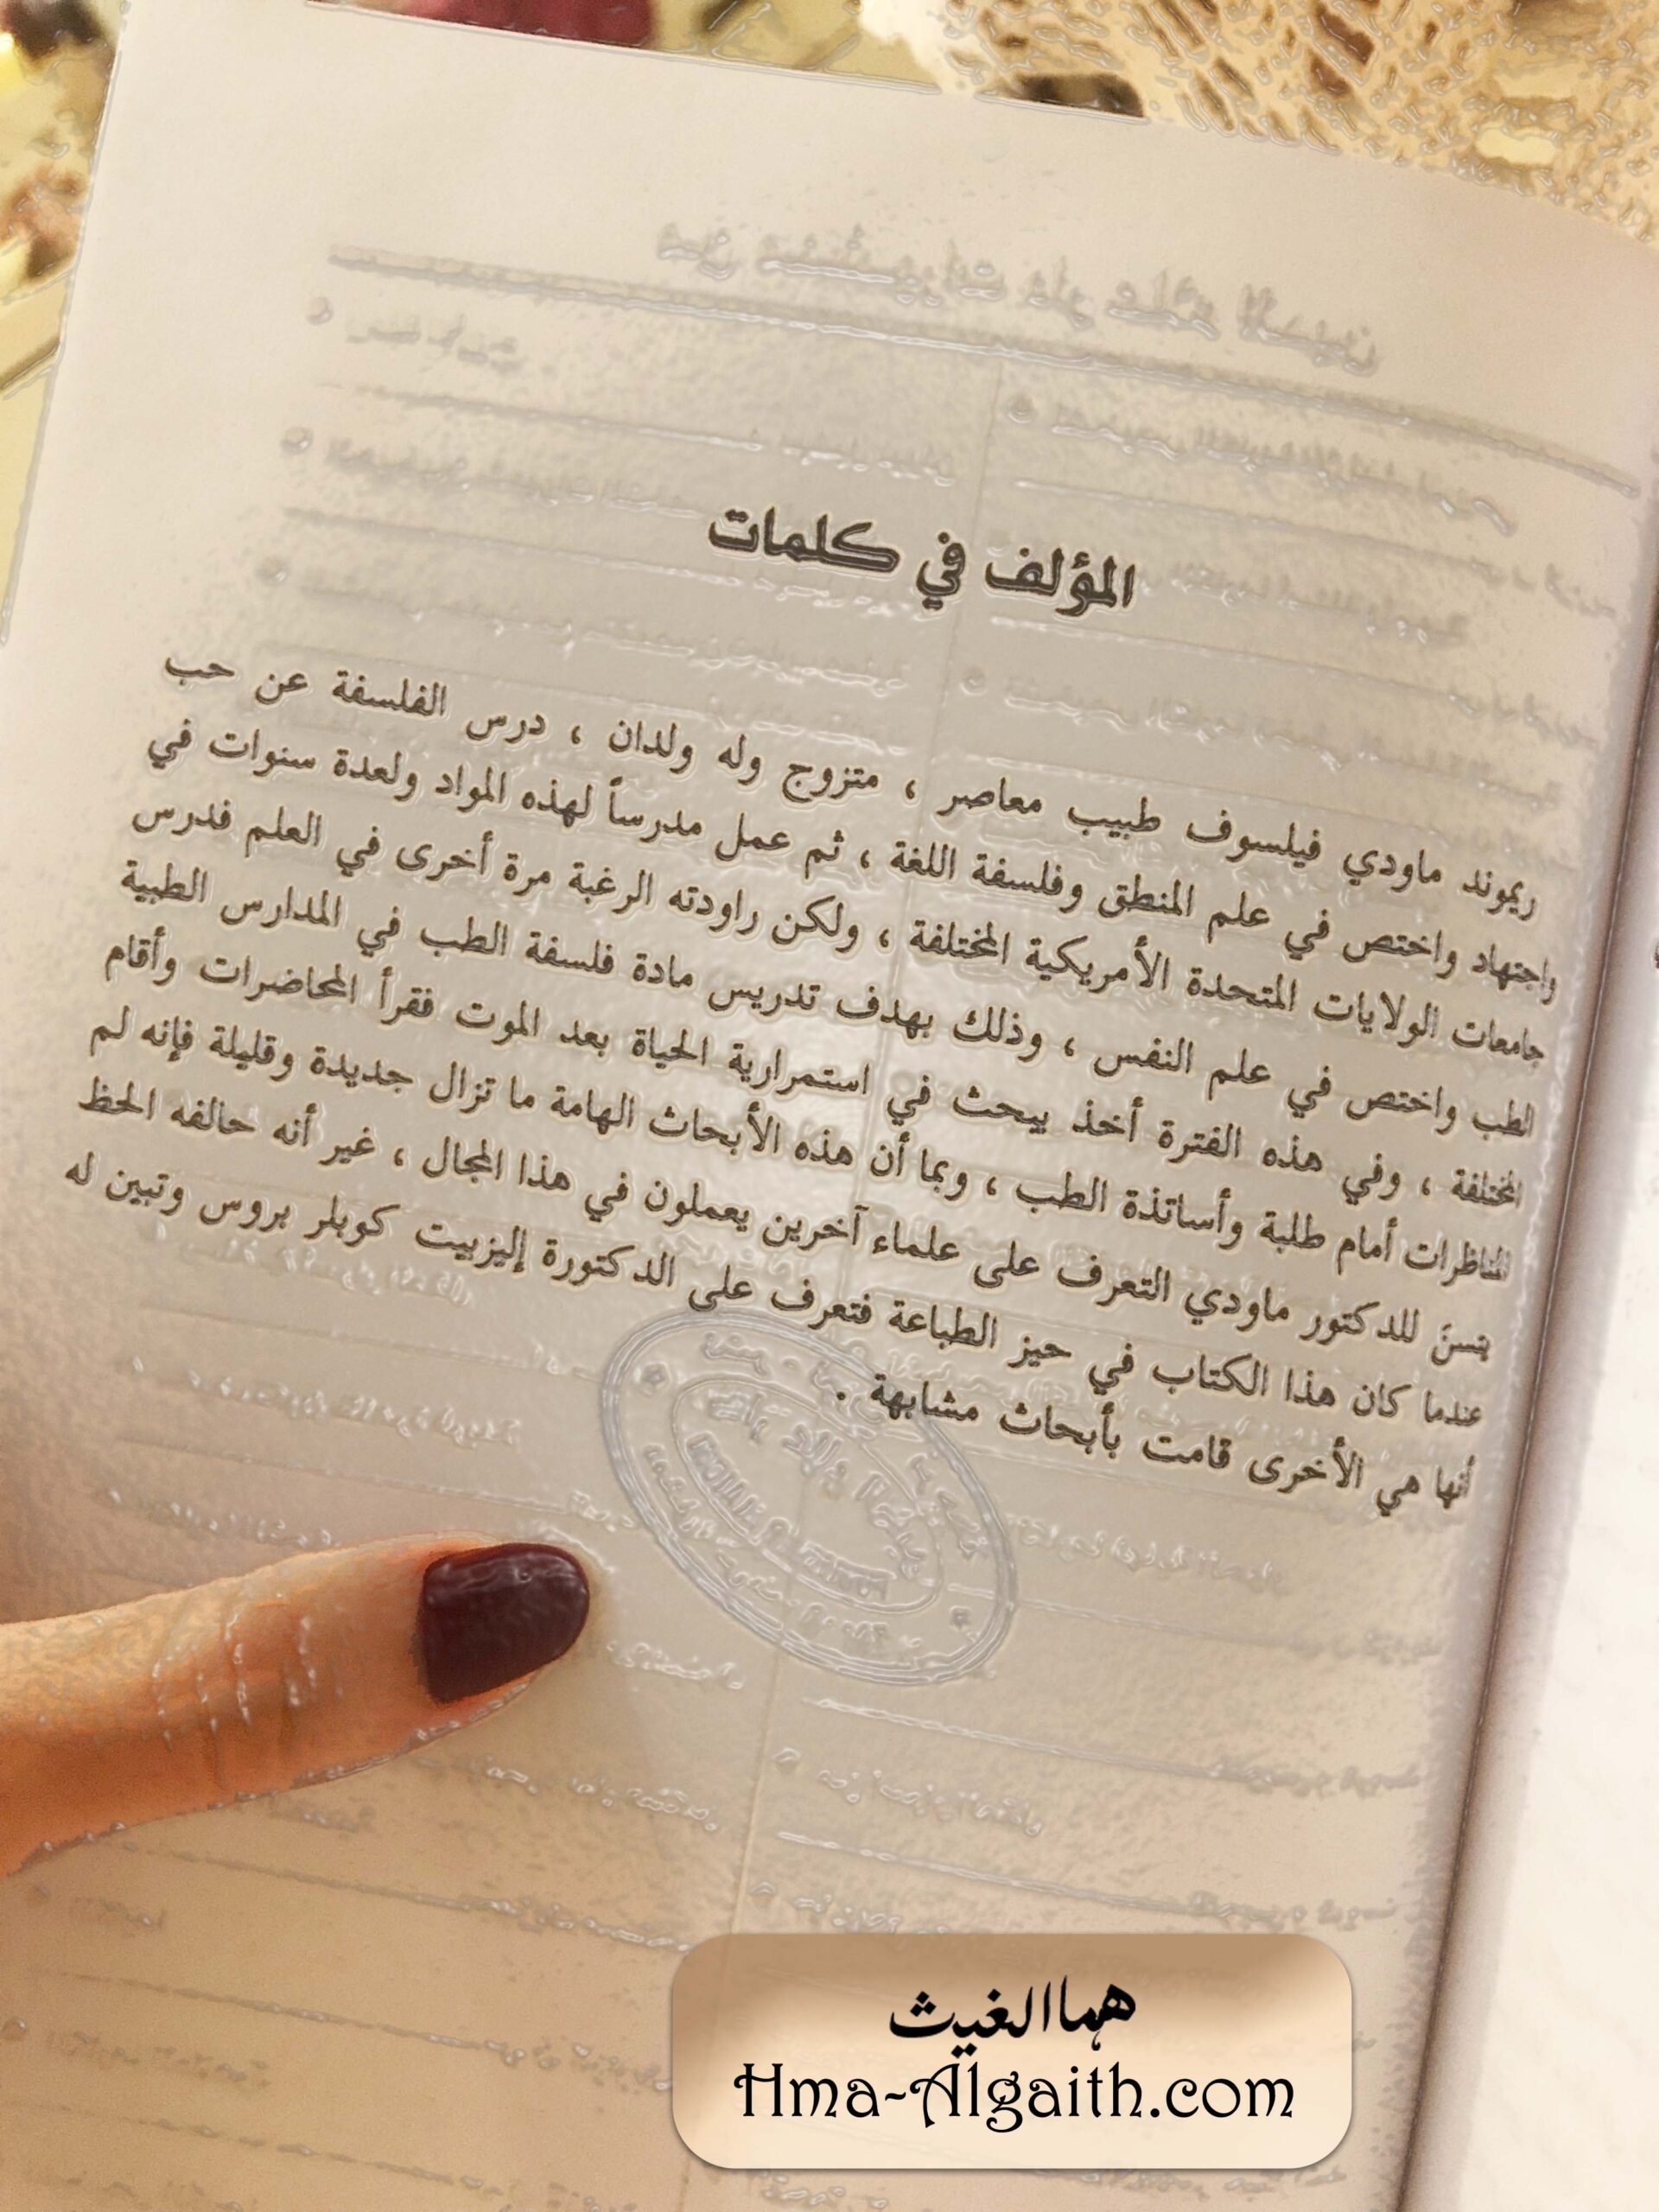 المؤلف في كلمات
ريموند ماودي فيلسوف طبيب معاصر ، متزوج وله ولدان ، درس الفلسفة عن حب
واجتهاد واختص في علم المنطق وفلسفة اللغة ، ثم عمل مدرساً لهذه المواد ولعدة سنوات في
جامعات الولايات المتحدة الأمريكية المختلفة ، ولكن راودته الرغبة مرة أخرى في العلم فدرس
الطب واختص في علم النفس ، وذلك بهدف تدريس مادة فلسفة الطب في المدارس الطبية
المختلفة ، وفي هذه الفترة أخذ يبحث في استمرارية الحياة بعد الموت فقرأ المحاضرات وأقام
المناظرات أمام طلبة وأساتذة الطب ، وبما أن هذه الأبحاث الهامة ما تزال جديدة وقليلة فإنه لم
يتسنَ للدكتور ماودي التعرف على علماء آخرين يعملون في هذا المجال ، غير أنه حالفه الحظ
عندما كان هذا الكتاب في حيز الطباعة فتعرف على الدكتورة إليزبيت كوبلر بروس وتبين له
أنها هي الأخرى قامت بأبحاث مشابهة .
هما الغيث
Hma-Algaith.com